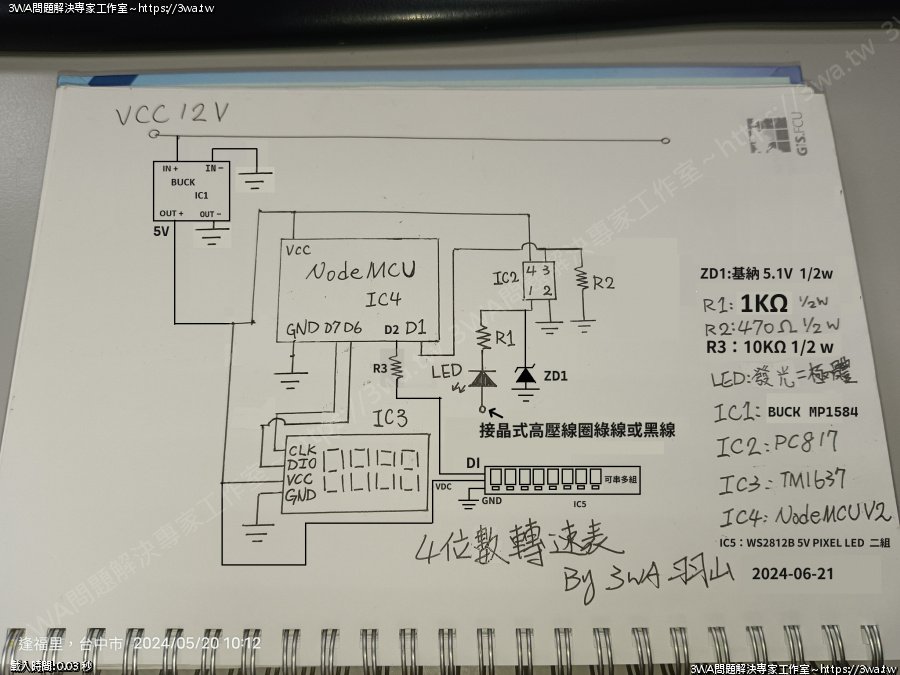 3WA問題解決專家工作室~https://3wa.tw
3WA問題解決專家工作室~https://3wa.tw
VCC 12V
GIS.FCU
IN+ IN-
BUCK
IC1
OUT+ OUT-
5V
VCC
NodeMCU
IC4
GND D7 D6 D2 D1
IC2
4 3
1 2
R2
R1
R3
LED
ZD1
接晶式高壓線圈綠線或黑線
IC3
CLK
DIO
VCC
GND
DI
VDC
GND
可串多組
IC5
ZD1:基納 5.1V 1/2w
R1: 1KΩ 1/2W
R2:470Ω 1/2W
R3:10KΩ 1/2 w
LED:發光二極體
IC1: BUCK MP1584
IC2:PC817
IC3: TM1637
IC4: NodeMCU V2
IC5:WS2812B 5V PIXEL LED 二組
4位數轉速表
By 3WA 羽山
2024-06-21
逢福里,台中市 2024/05/20 10:12
載入時間: 0.03 秒
3WA問題解決專家工作室~https://3wa.tw